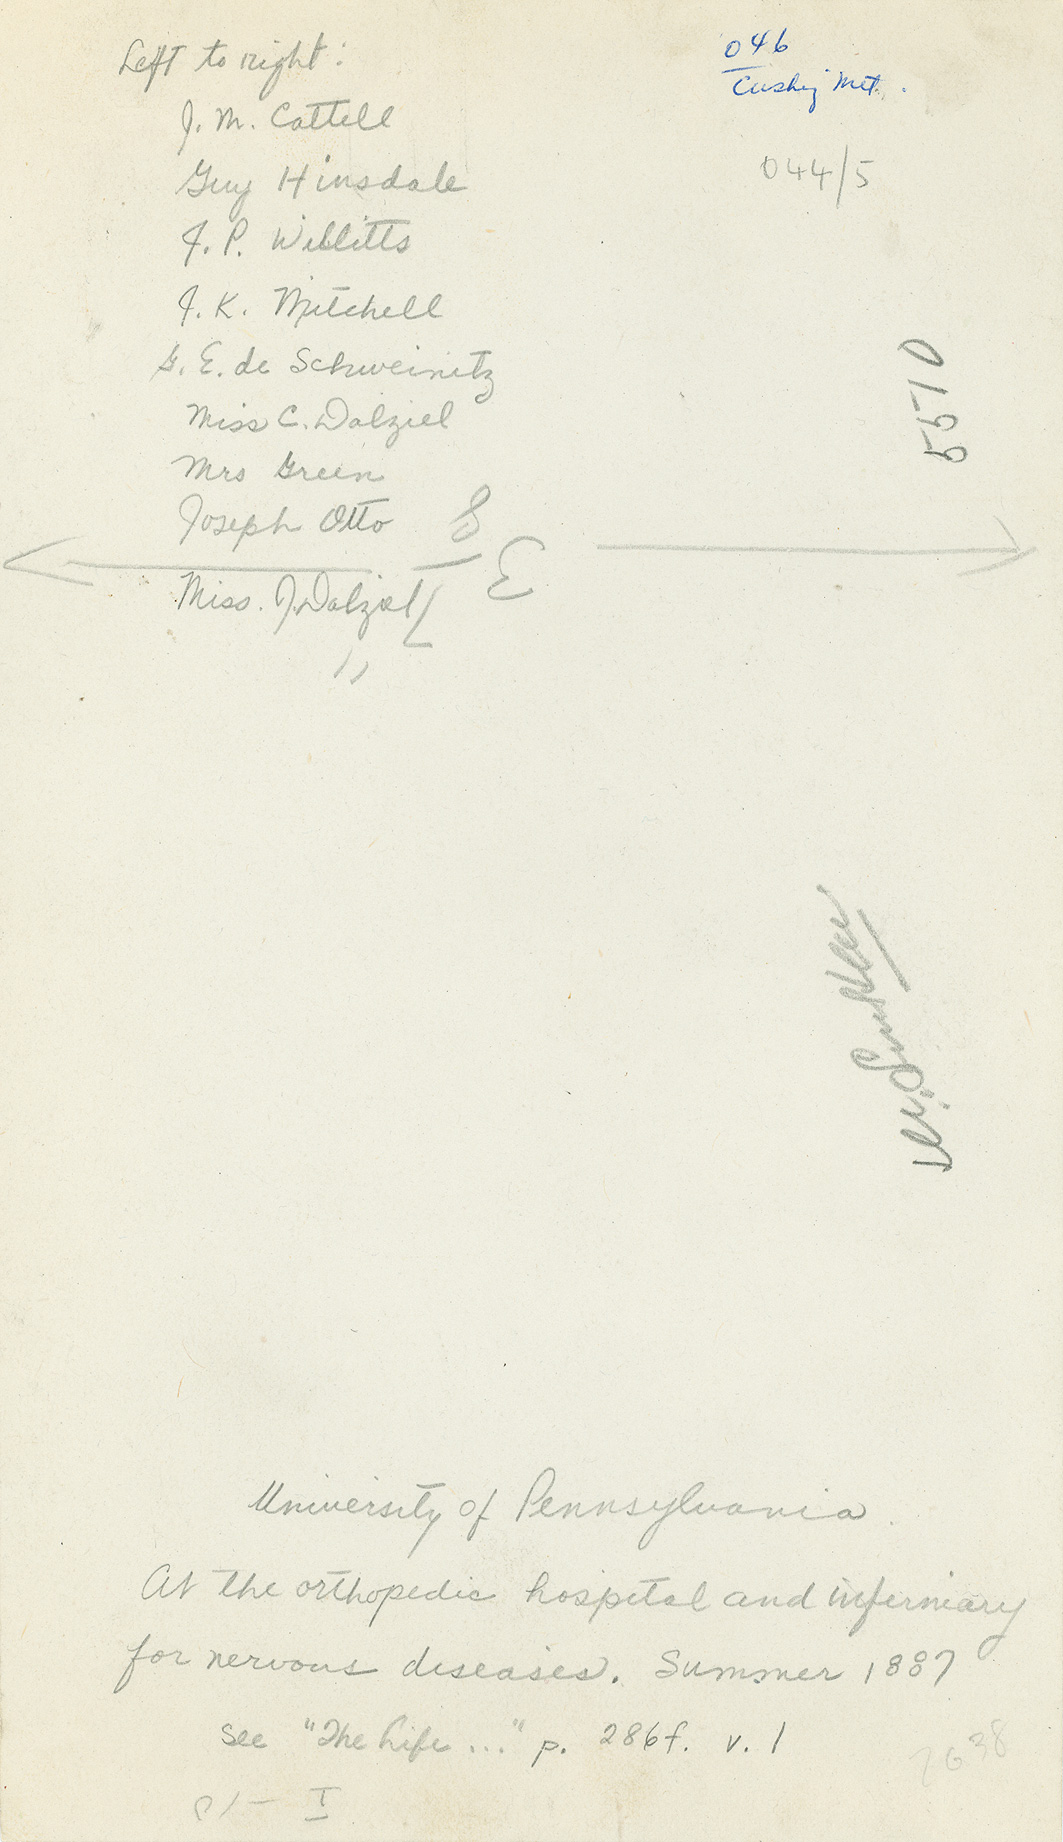 046
Cushing Met.
044/5
Left to right:
J. M. Cattell
Guy Hinsdale
J. P. Willitts
J. K. Mitchell
G. E. de Schweinitz
Miss C. Dalziel
Mrs Green
Joseph Otto
Miss. J. Dalziel
5570
University of Pennsylvania
At the orthopedic hospital and infermiary
for nervous diseases. Summer 1887
See "The Life..." p. 286f. v. 1
I
7638